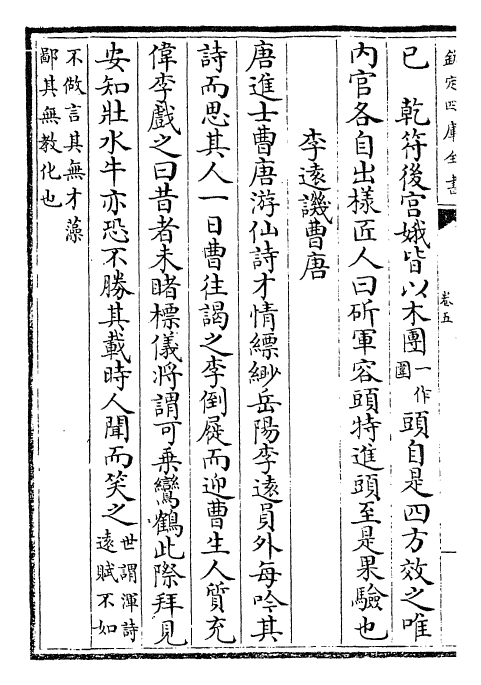 欽定四庫全書
卷五
已　乾符後宫娥皆以木團一作圍頭自是四方效之唯
内官各自出樣匠人曰斫軍容頭特進頭至是果驗也
李遠譏曹唐
唐進士曹唐游仙詩才情縹緲岳陽李遠員外每吟其
詩而思其人一日曹往謁之李倒屣而迎曹生人質充
偉李戲之曰昔者未睹標儀將謂可乗鸞鶴此際拜見
安知壯水牛亦恐不勝其載時人聞而笑之世謂渾詩遠賦不如
不做言其無才藻鄙其無教化也